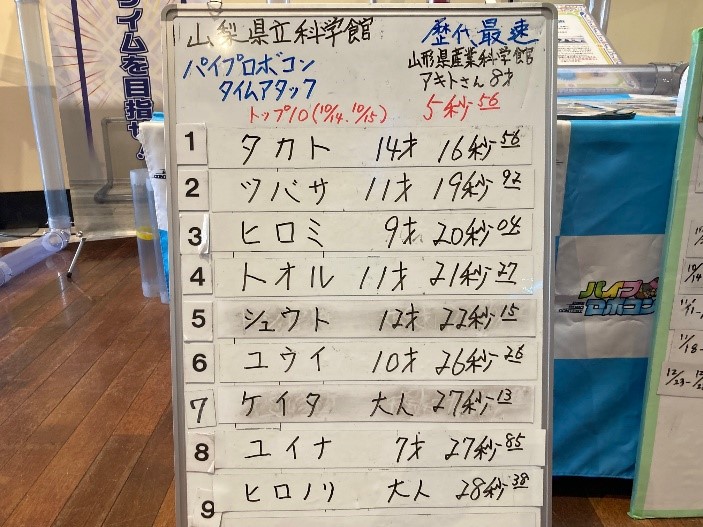 山梨県立科学館
歴代最速
パイプロボコン
タイムアタック
山形県産業科学館
アキトさん 8才
トップ10(10/14. 10/15)
5秒56
1 タカト 14才 16秒56
2 ツバサ 11才 19秒92
3 ヒロミ 9才 20秒04
4 トオル 11才 21秒27
5 シュウト 12才 22秒15
6 ユウイ 10才 26秒26
7 ケイタ 大人 27秒13
8 ユイナ 7才 27秒85
9 ヒロノリ 大人 28秒38
イムを目指せ!
パイプ
ロボコン
10/14
11/11-
11/18-
12/23-